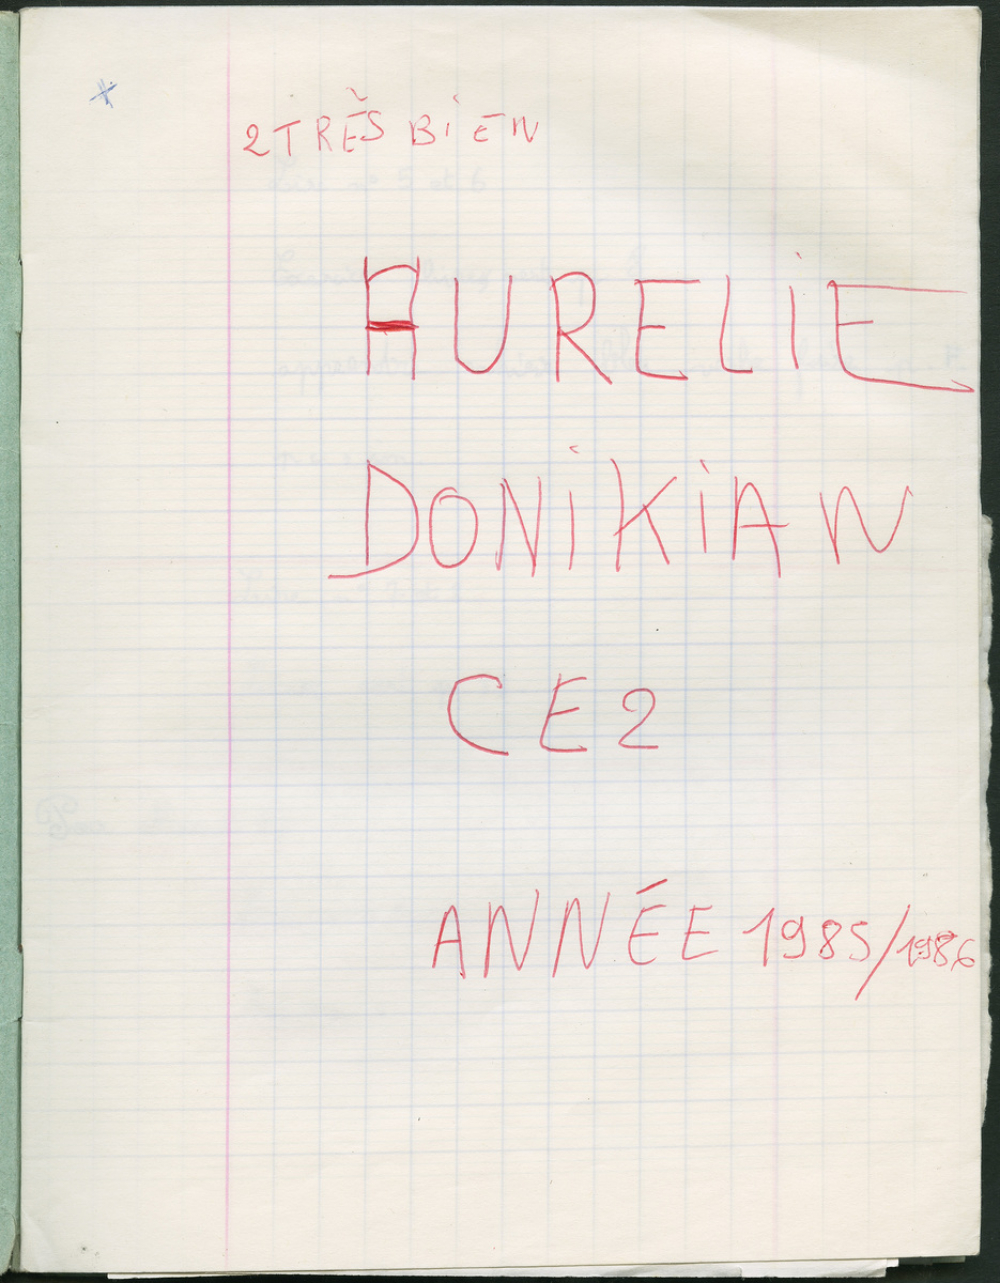 2 TRÈS BiEN
AURELiE
DONiKiAN
CE2
ANNÉE 1985/1986